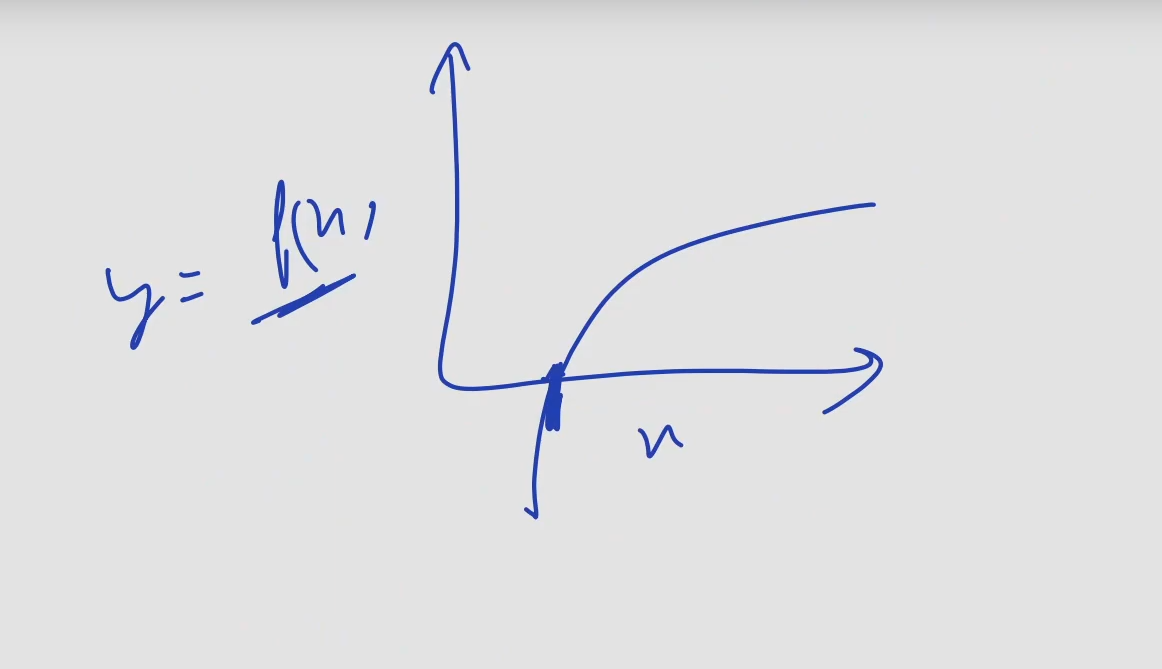 y = f(x)
x